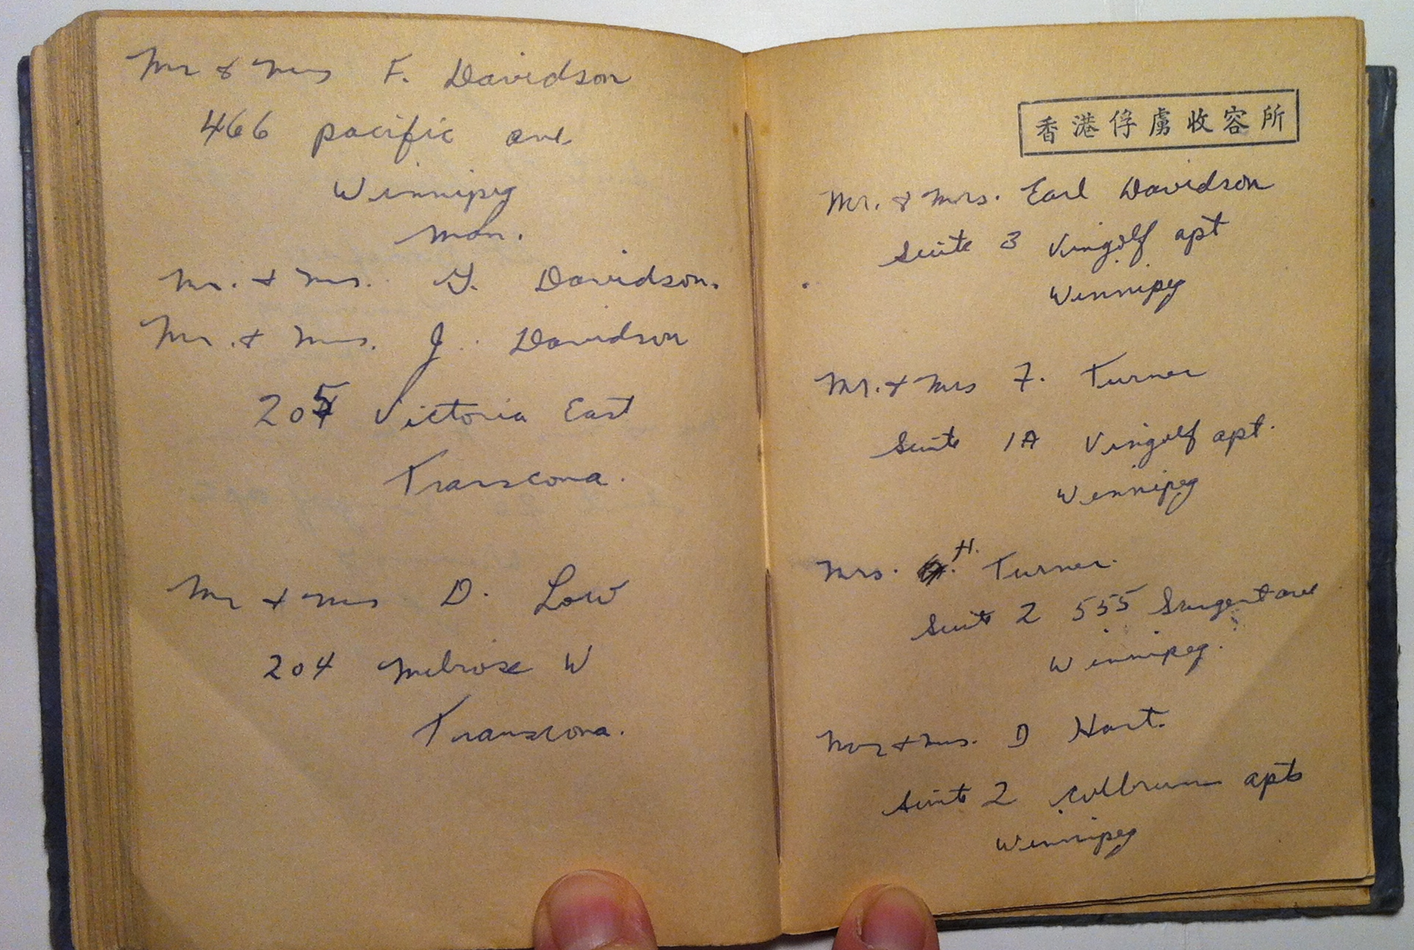 Mr & Mrs F. Davidson
466 pacific ave
Winnipeg
Man.
Mr. & Mrs. Y. Davidson.
Mr. & Mrs. J. Davidson
205 Victoria East
Transcona.
Mr & Mrs D. Low
204 Melrose W
Transcona.
香港俘虜收容所
Mr. & Mrs. Earl Davidson
Suite 3 Vingolf apt
Winnipeg
Mr. & Mrs F. Turner
Suite 1A Vingolf apt.
Winnipeg
Mrs. H. Turner.
Suite 2 555 Sargent ave
Winnipeg.
Mr & Mrs. D Hart.
Suite 2 apts
Winnipeg